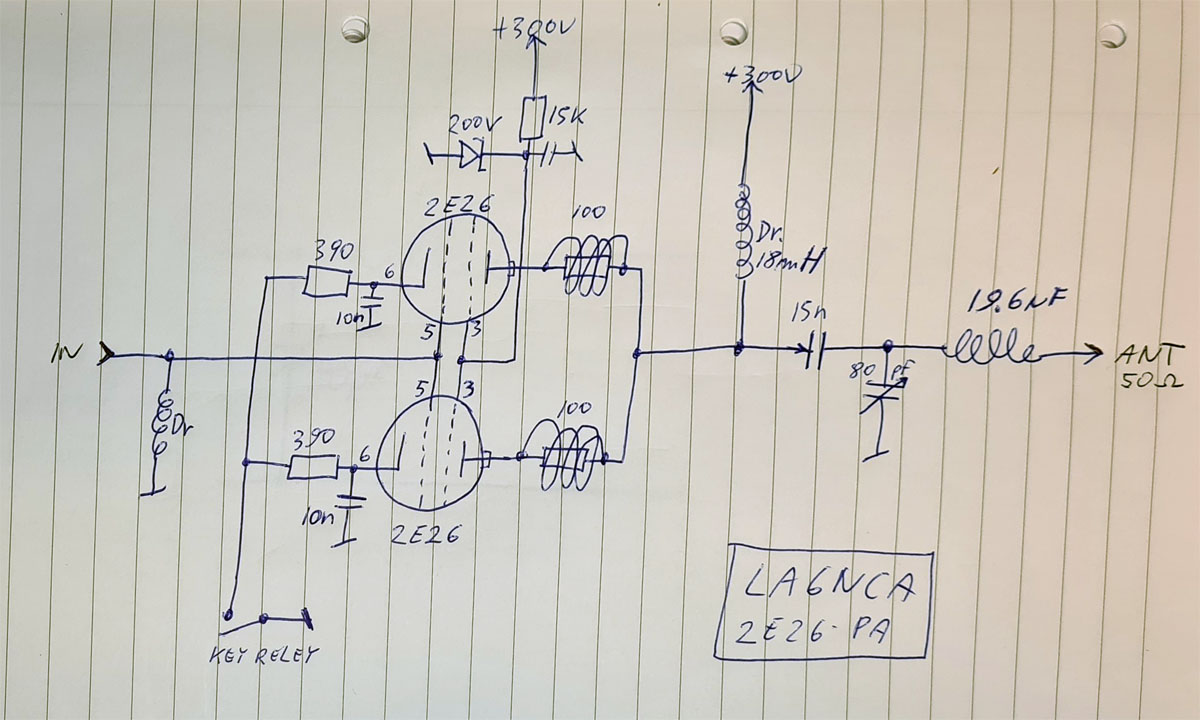 +300V
+300V
15K
200V
2E26
100
Dr.
18mH
390
6
10n
5
3
19.6nF
15n
IN
ANT
50Ω
80 pF
5
3
100
Dr
390
6
10n
2E26
LA6NCA
2E26-PA
KEY RELEY